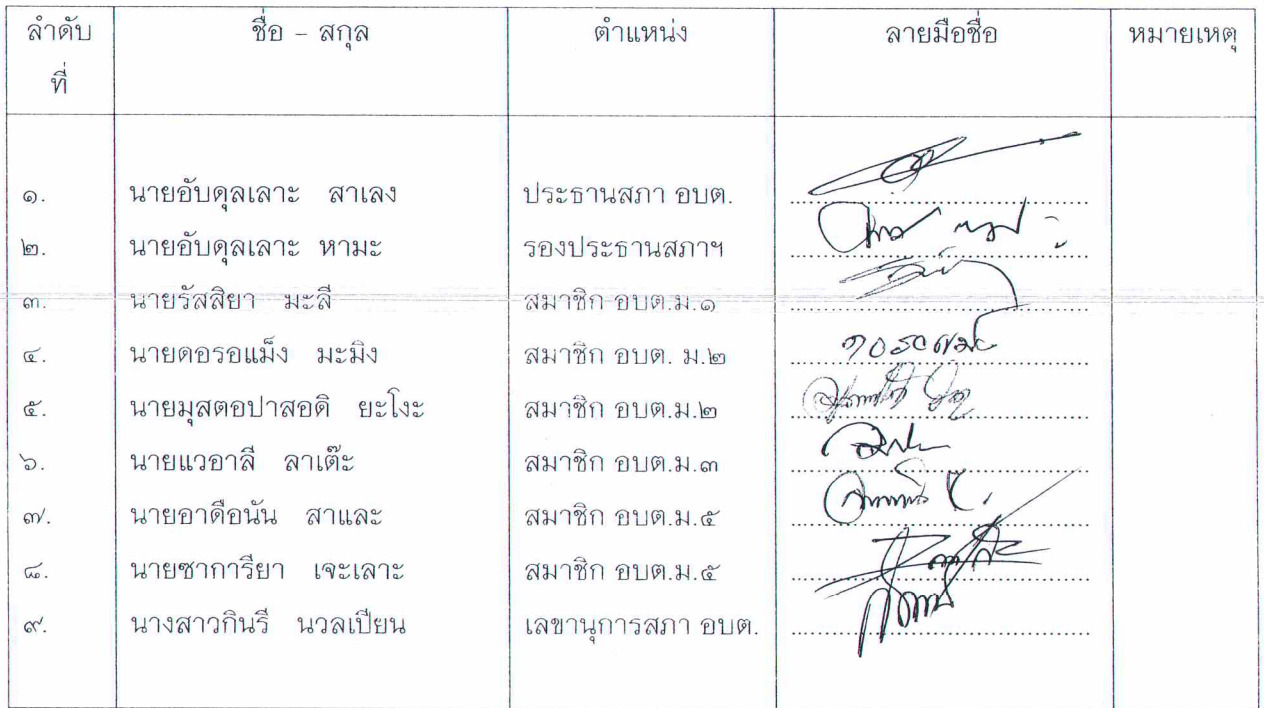 ลำดับ ชื่อ – สกุล ตำแหน่ง ลายมือชื่อ หมายเหตุ
ที่
๑. นายอับดุลเลาะ สาเลง ประธานสภา อบต.
๒. นายอับดุลเลาะ หามะ รองประธานสภาฯ
๓. นายรัสสิยา มะลี สมาชิก อบต.ม.๑
๔. นายดอรอแม็ง มะมิง สมาชิก อบต. ม.๒
๕. นายมุสตอปาสอดิ ยะโงะ สมาชิก อบต.ม.๒
๖. นายแวอาลี ลาเต๊ะ สมาชิก อบต.ม.๓
๗. นายอาดือนัน สาและ สมาชิก อบต.ม.๕
๘. นายซาการียา เจะเลาะ สมาชิก อบต.ม.๕
๙. นางสาวกินรี นวลเปียน เลขานุการสภา อบต.